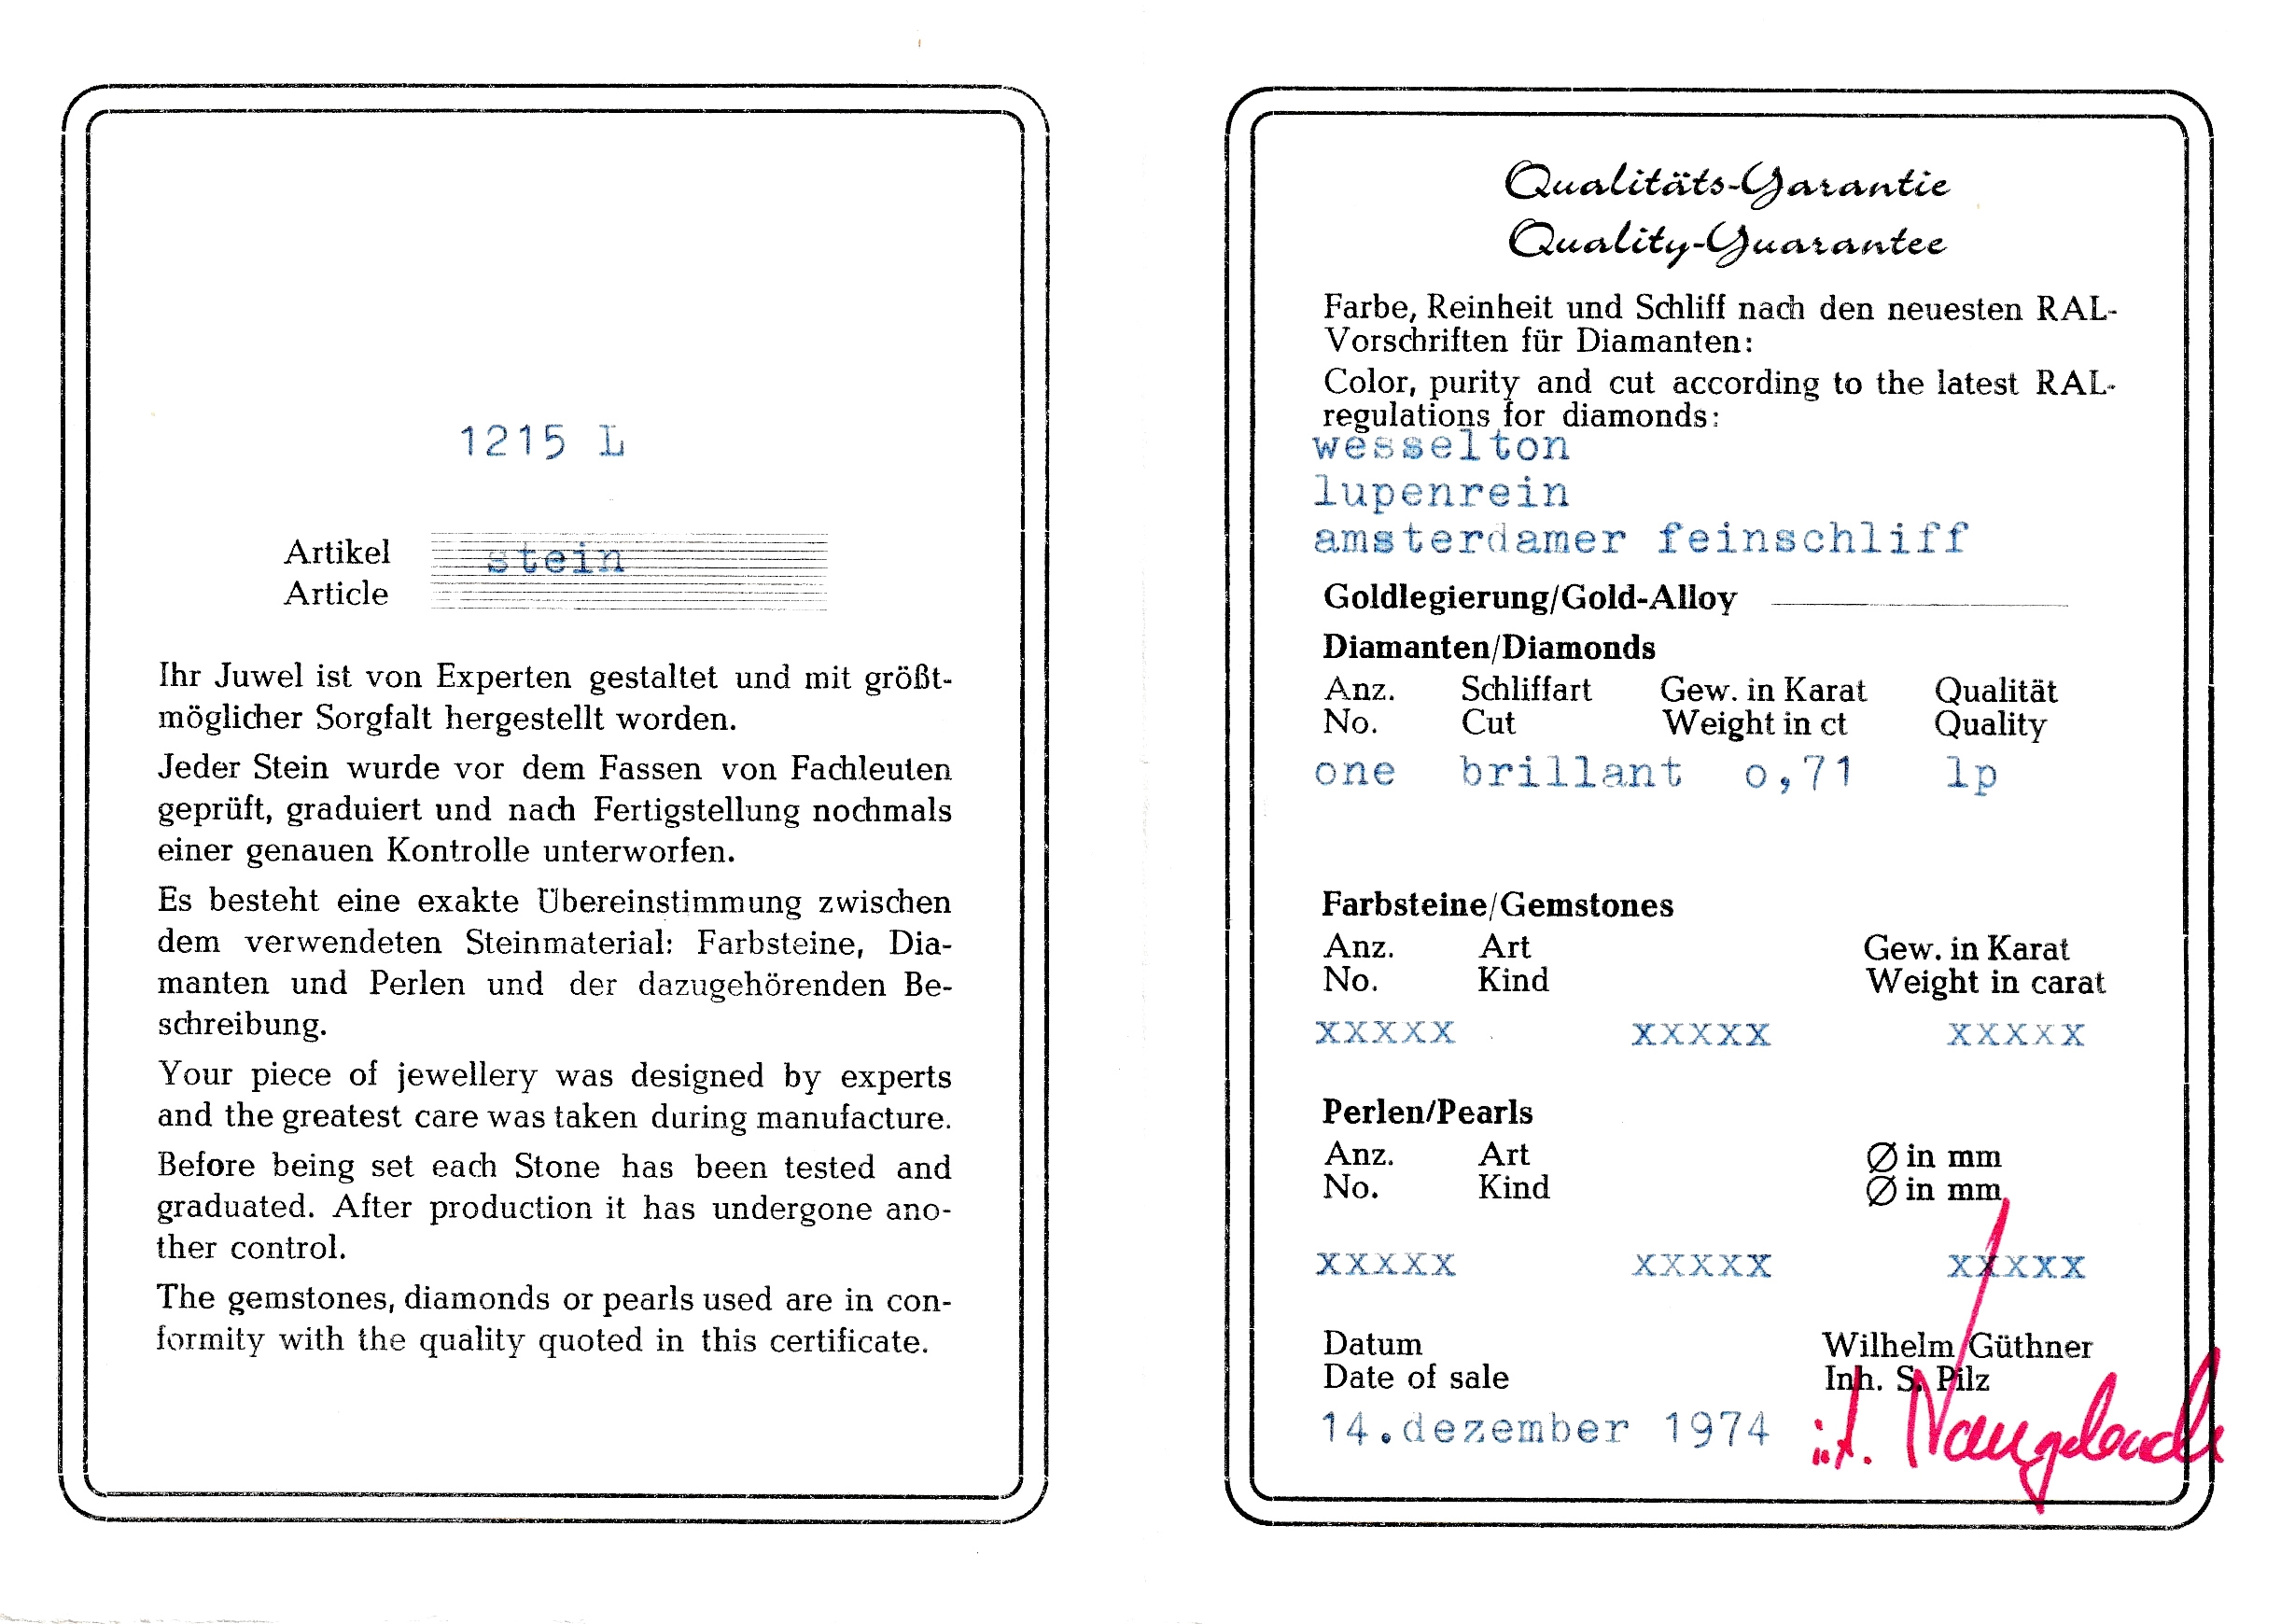 1215 L
Artikel stein
Article
Ihr Juwel ist von Experten gestaltet und mit größt-
möglicher Sorgfalt hergestellt worden.
Jeder Stein wurde vor dem Fassen von Fachleuten
geprüft, graduiert und nach Fertigstellung nochmals
einer genauen Kontrolle unterworfen.
Es besteht eine exakte Übereinstimmung zwischen
dem verwendeten Steinmaterial: Farbsteine, Dia-
manten und Perlen und der dazugehörenden Be-
schreibung.
Your piece of jewellery was designed by experts
and the greatest care was taken during manufacture.
Before being set each Stone has been tested and
graduated. After production it has undergone ano-
ther control.
The gemstones, diamonds or pearls used are in con-
formity with the quality quoted in this certificate.
Qualitäts-Garantie
Quality-Guarantee
Farbe, Reinheit und Schliff nach den neuesten RAL-
Vorschriften für Diamanten:
Color, purity and cut according to the latest RAL-
regulations for diamonds:
wesselton
lupenrein
amsterdamer feinschliff
Goldlegierung/Gold-Alloy
Diamanten/Diamonds
Anz. Schliffart Gew. in Karat Qualität
No. Cut Weight in ct Quality
one brillant o,71 lp
Farbsteine/Gemstones
Anz. Art Gew. in Karat
No. Kind Weight in carat
xxxxx xxxxx xxxxx
Perlen/Pearls
Anz. Art Ø in mm
No. Kind Ø in mm
xxxxx xxxxx xxxxx
Datum Wilhelm Güthner
Date of sale Inh. S. Pilz
14.dezember 1974